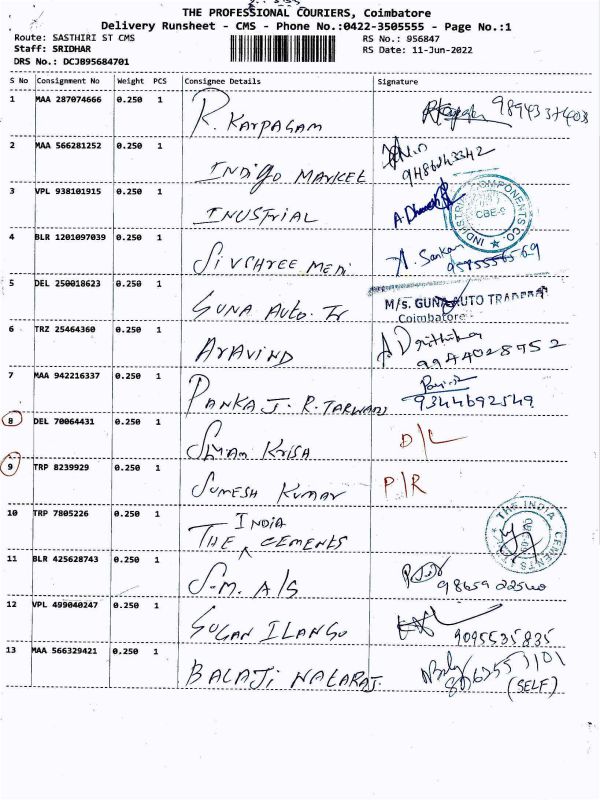 THE PROFESSIONAL COURIERS, Coimbatore
Delivery Runsheet - CMS - Phone No.:0422-3505555 - Page No.:1
Route: SASTHIRI ST CMS RS No.: 956847
Staff: SRIDHAR RS Date: 11-Jun-2022
DRS No.: DCJB95684701
S No Consignment No Weight PCS Consignee Details Signature
1 MAA 287074666 0.250 1 R. KARPAGAM 9894337403
2 MAA 566281252 0.250 1 INDIGO MARKET 9486043342
3 VPL 938101915 0.250 1 INUSTRIAL INDUSTRIAL COMPONENTS CO. CBE-9
4 BLR 1201097039 0.250 1 SIVSHREE MEDI A. Sankar 9595556569
5 DEL 250018623 0.250 1 GUNA AUTO. Tr M/S. GUNA AUTO TRADERS
Coimbatore
6 TRZ 25464360 0.250 1 ARAVIND 9944028952
7 MAA 942216337 0.250 1 PANKAJ. R. TARWANI 9344692549
8 DEL 70064431 0.250 1 SHYAM KRISA D/L
9 TRP 8239929 0.250 1 SUMESH KUMAR P/R
10 TRP 7805226 0.250 1 THE INDIA CEMENTS THE INDIA CEMENTS
11 BLR 425628743 0.250 1 S.M. A/S
12 VPL 499040247 0.250 1 SUGAN ILANGO 9095535835
13 MAA 566329421 0.250 1 BALAJI NATARAJ. (SELF)